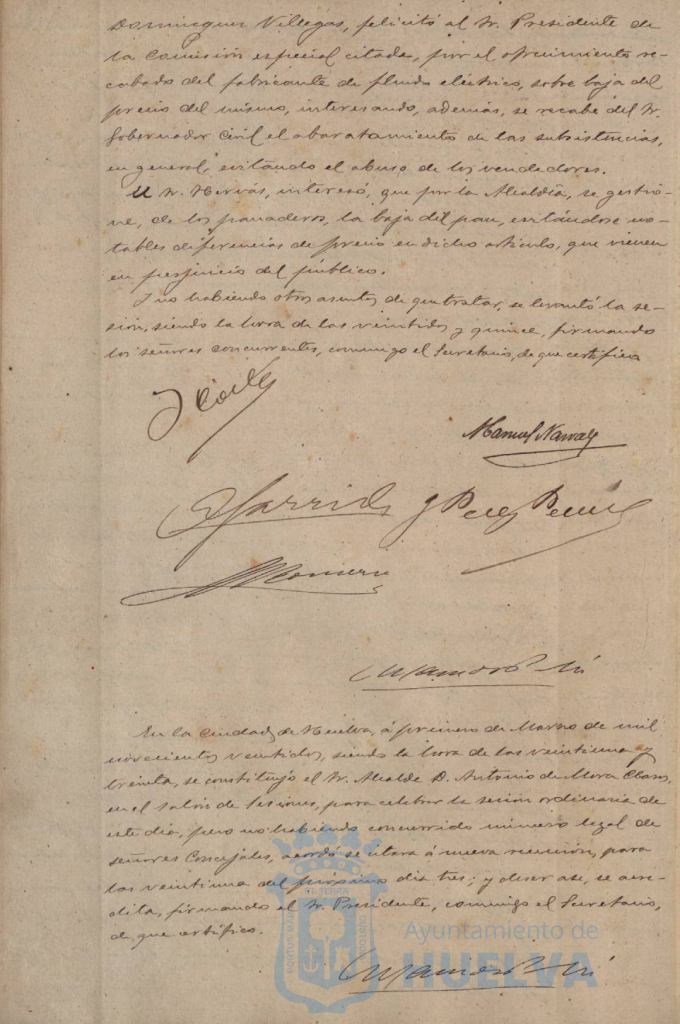 Dominguez Villegas, felicitó al Sr. Presidente de
la Comisión especial citada, por el ofrecimiento re-
cabado del fabricante de fluido eléctrico, sobre baja del
precio del mismo, interesando, además, se recabe del Sr.
Gobernador Civil el abaratamiento de las subsistencias,
en general, evitando el abuso de los vendedores.
El Sr. Hervás, interesó, que por la Alcaldía, se gestio-
ne, de los panaderos, la baja del pan, evitándose no-
tables diferencias de precio en dicho artículo, que vienen
en perjuicio del público.
Y no habiendo otros asuntos de que tratar, se levantó la se-
sión, siendo la hora de las veintidos y quince, firmando
los señores concurrentes, conmigo el Secretario, de que certifico
Manuel Narvaez
Garrido
J Perez
Romero
En la Ciudad de Huelva, á primero de Marzo de mil
novecientos veintidos, siendo la hora de las veintiuna y
treinta, se constituyó el Sr. Alcalde D. Antonio de Mora Claros,
en el salón de Sesiones, para celebrar la sesión ordinaria de
este día, pero no habiendo concurrido número legal de
señores Concejales, acordó se citara á nueva reunión, para
las veintiuna del próximo dia tres; y de ser asi, se acre-
dita, firmando el Sr. Presidente, conmigo el Secretario,
de que certifico.
Ayuntamiento de
HUELVA